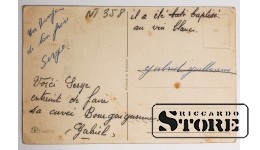 N 358
il a été baptisé
au vin blanc.
Un
de
Serge.
Gabriel Guillaume
Voici Serge
entrain de faire
sa cuvée Bourguignonne
Gabriel
RICCARDO
STORE